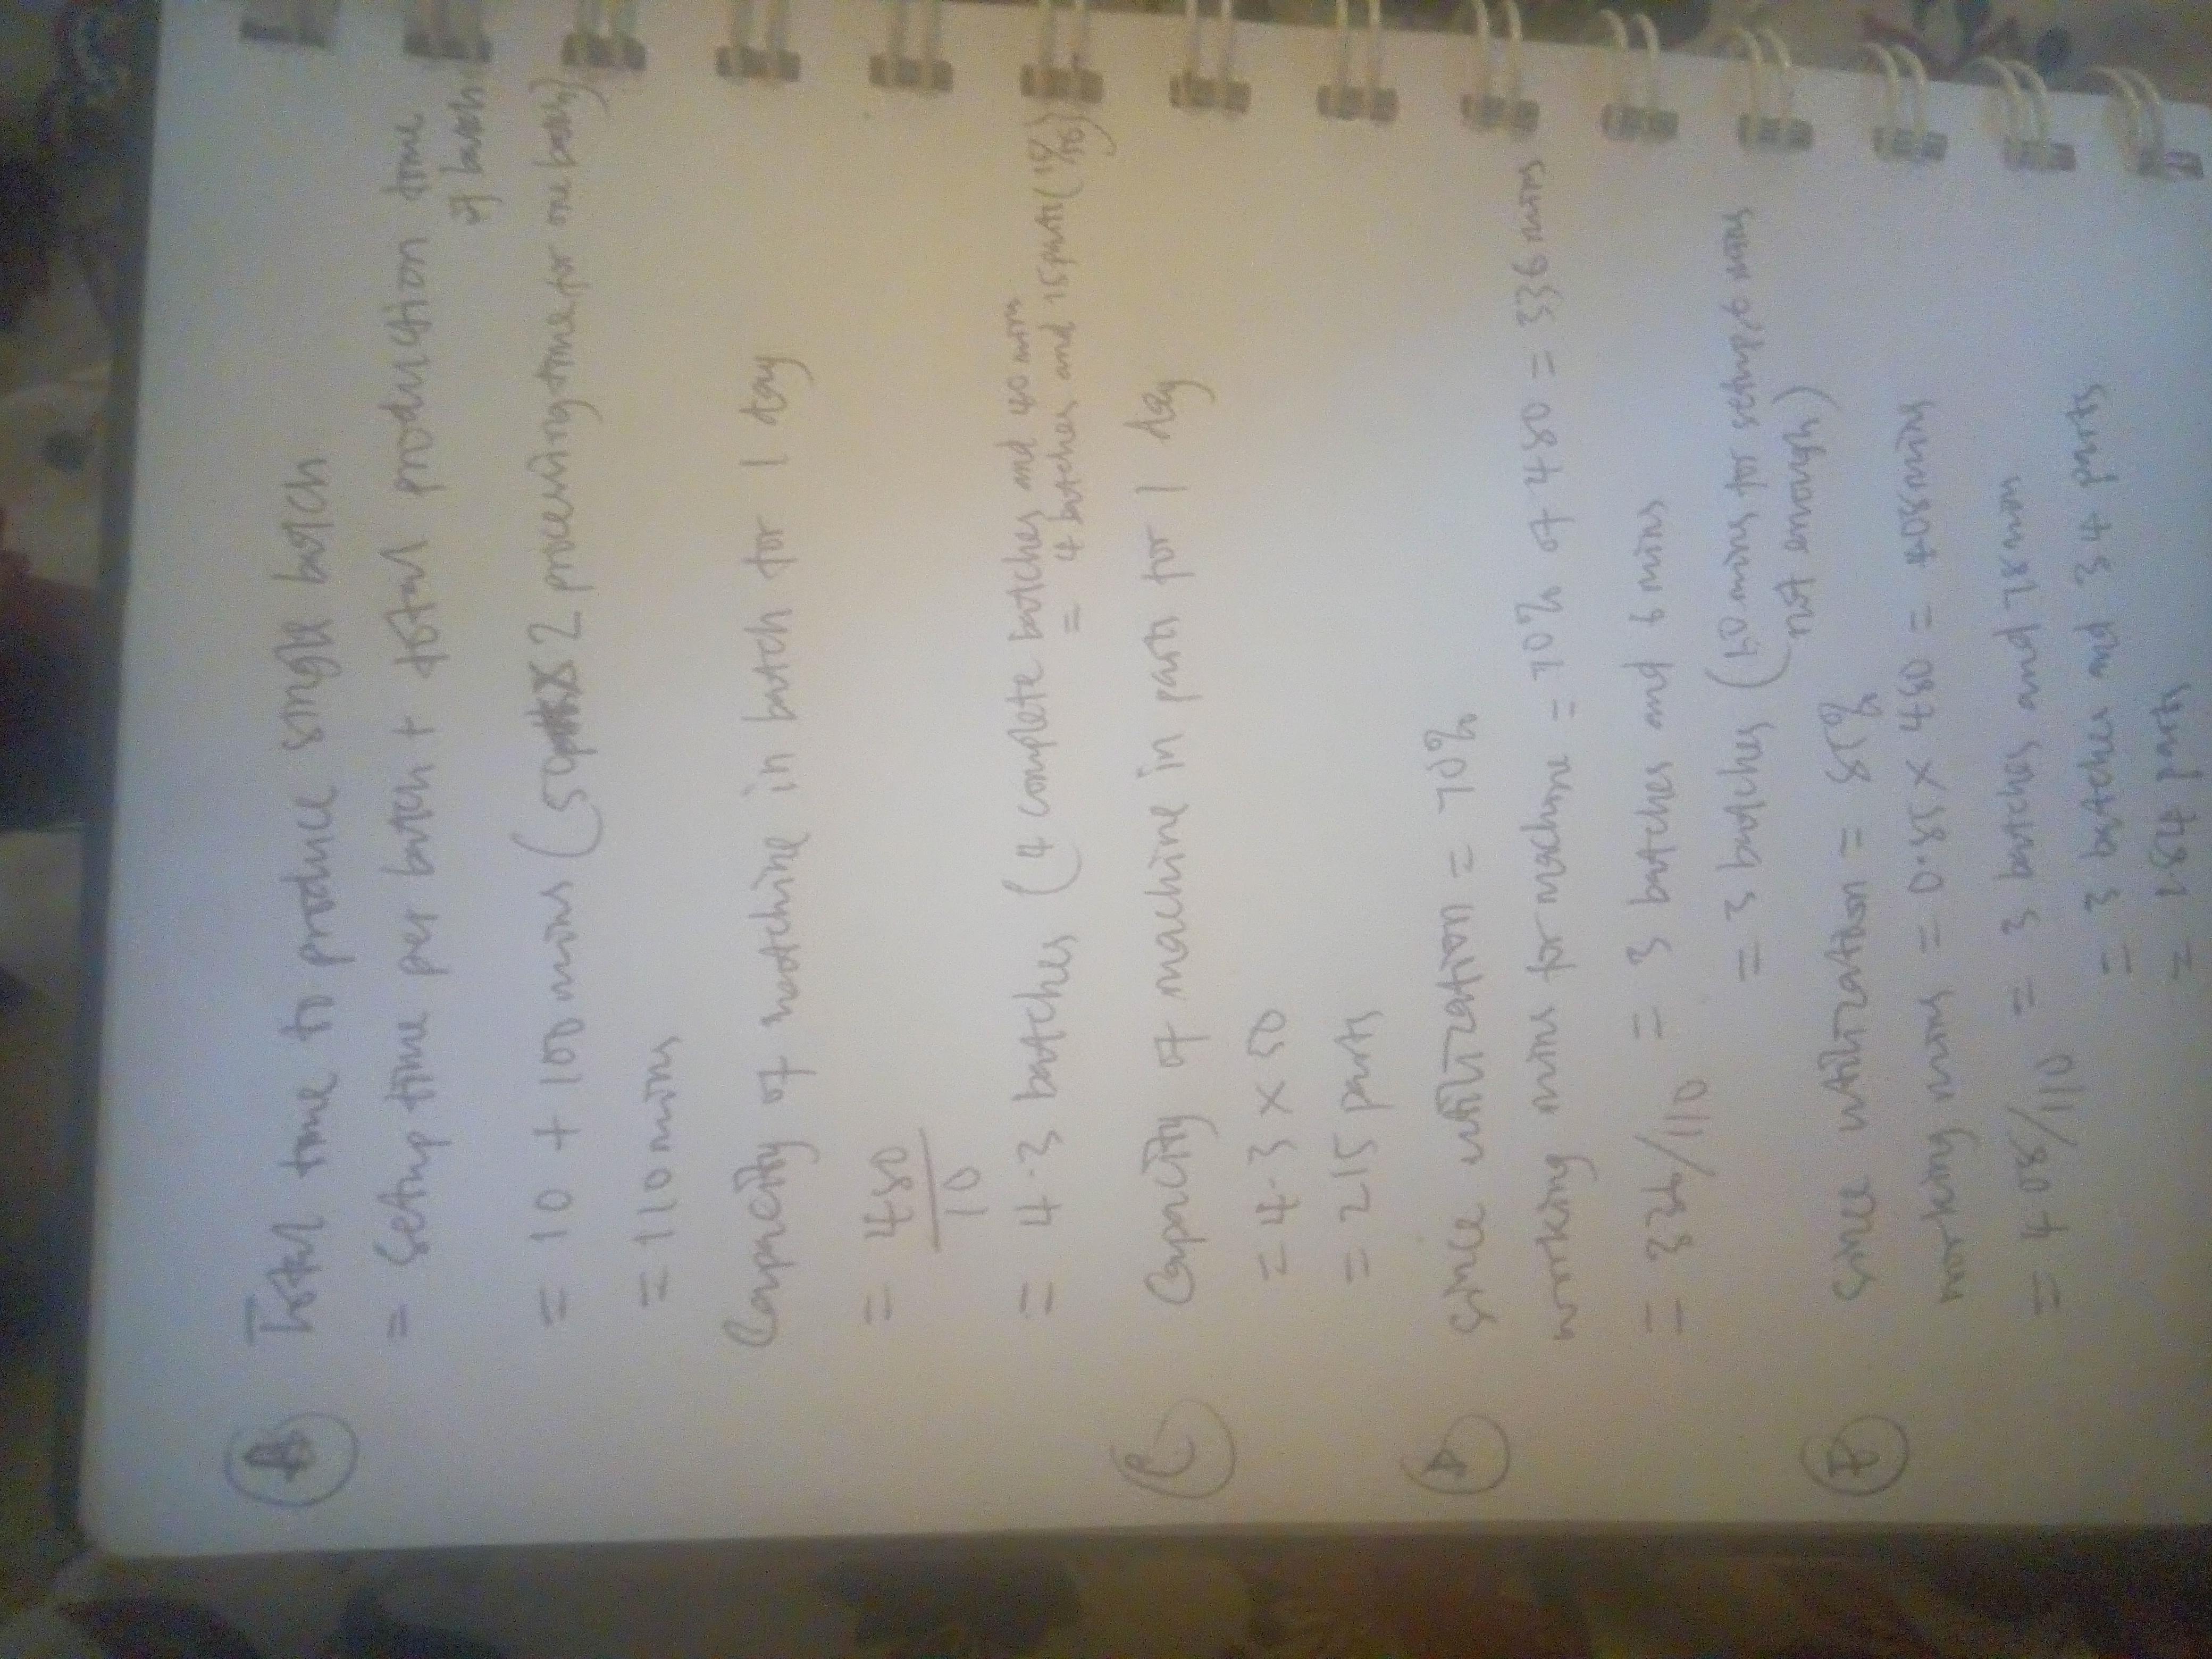 Total time to produce single batch
= Setup time per batch + total production time
of batch
= 10 + 100 mins (50 2 processing time for one batch)
= 110 mins
Capacity of machine in batch for 1 day
= 480
10
= 4.3 batches (4 complete batches and 40 min
= 4 batches and 15 parts
C Capacity of machine in parts for 1 day
= 4.3 x 50
= 215 parts
D Since utilization = 70%
working mins for machine = 70% of 480 = 336 mins
= 336/110 = 3 batches and 6 mins
= 3 batches (10 mins for setup, 6 mins
not enough)
Since utilization = 85%
working mins = 0.85 x 480 = 408 mins
= 408/110 = 3 batches and 78 min
= 3 batches and 34 parts
= 184 parts